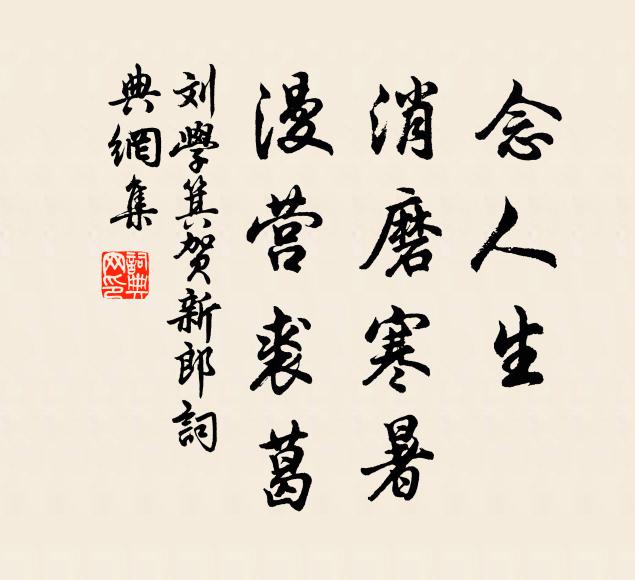 念人生
消磨寒暑
漫营裘葛
刘學箕贺新郎詞
典網集
詞典网印